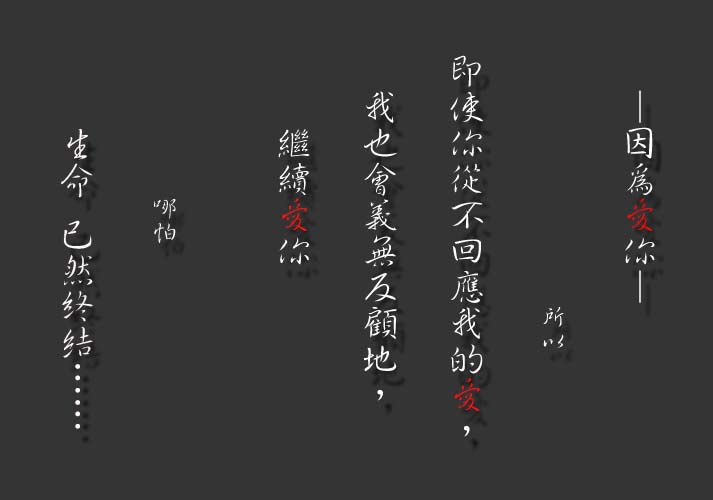 —因為愛你—
所以
即使你從不回應我的愛，
我也會義無反顧地，
繼續愛你
哪怕
生命 已然終結……